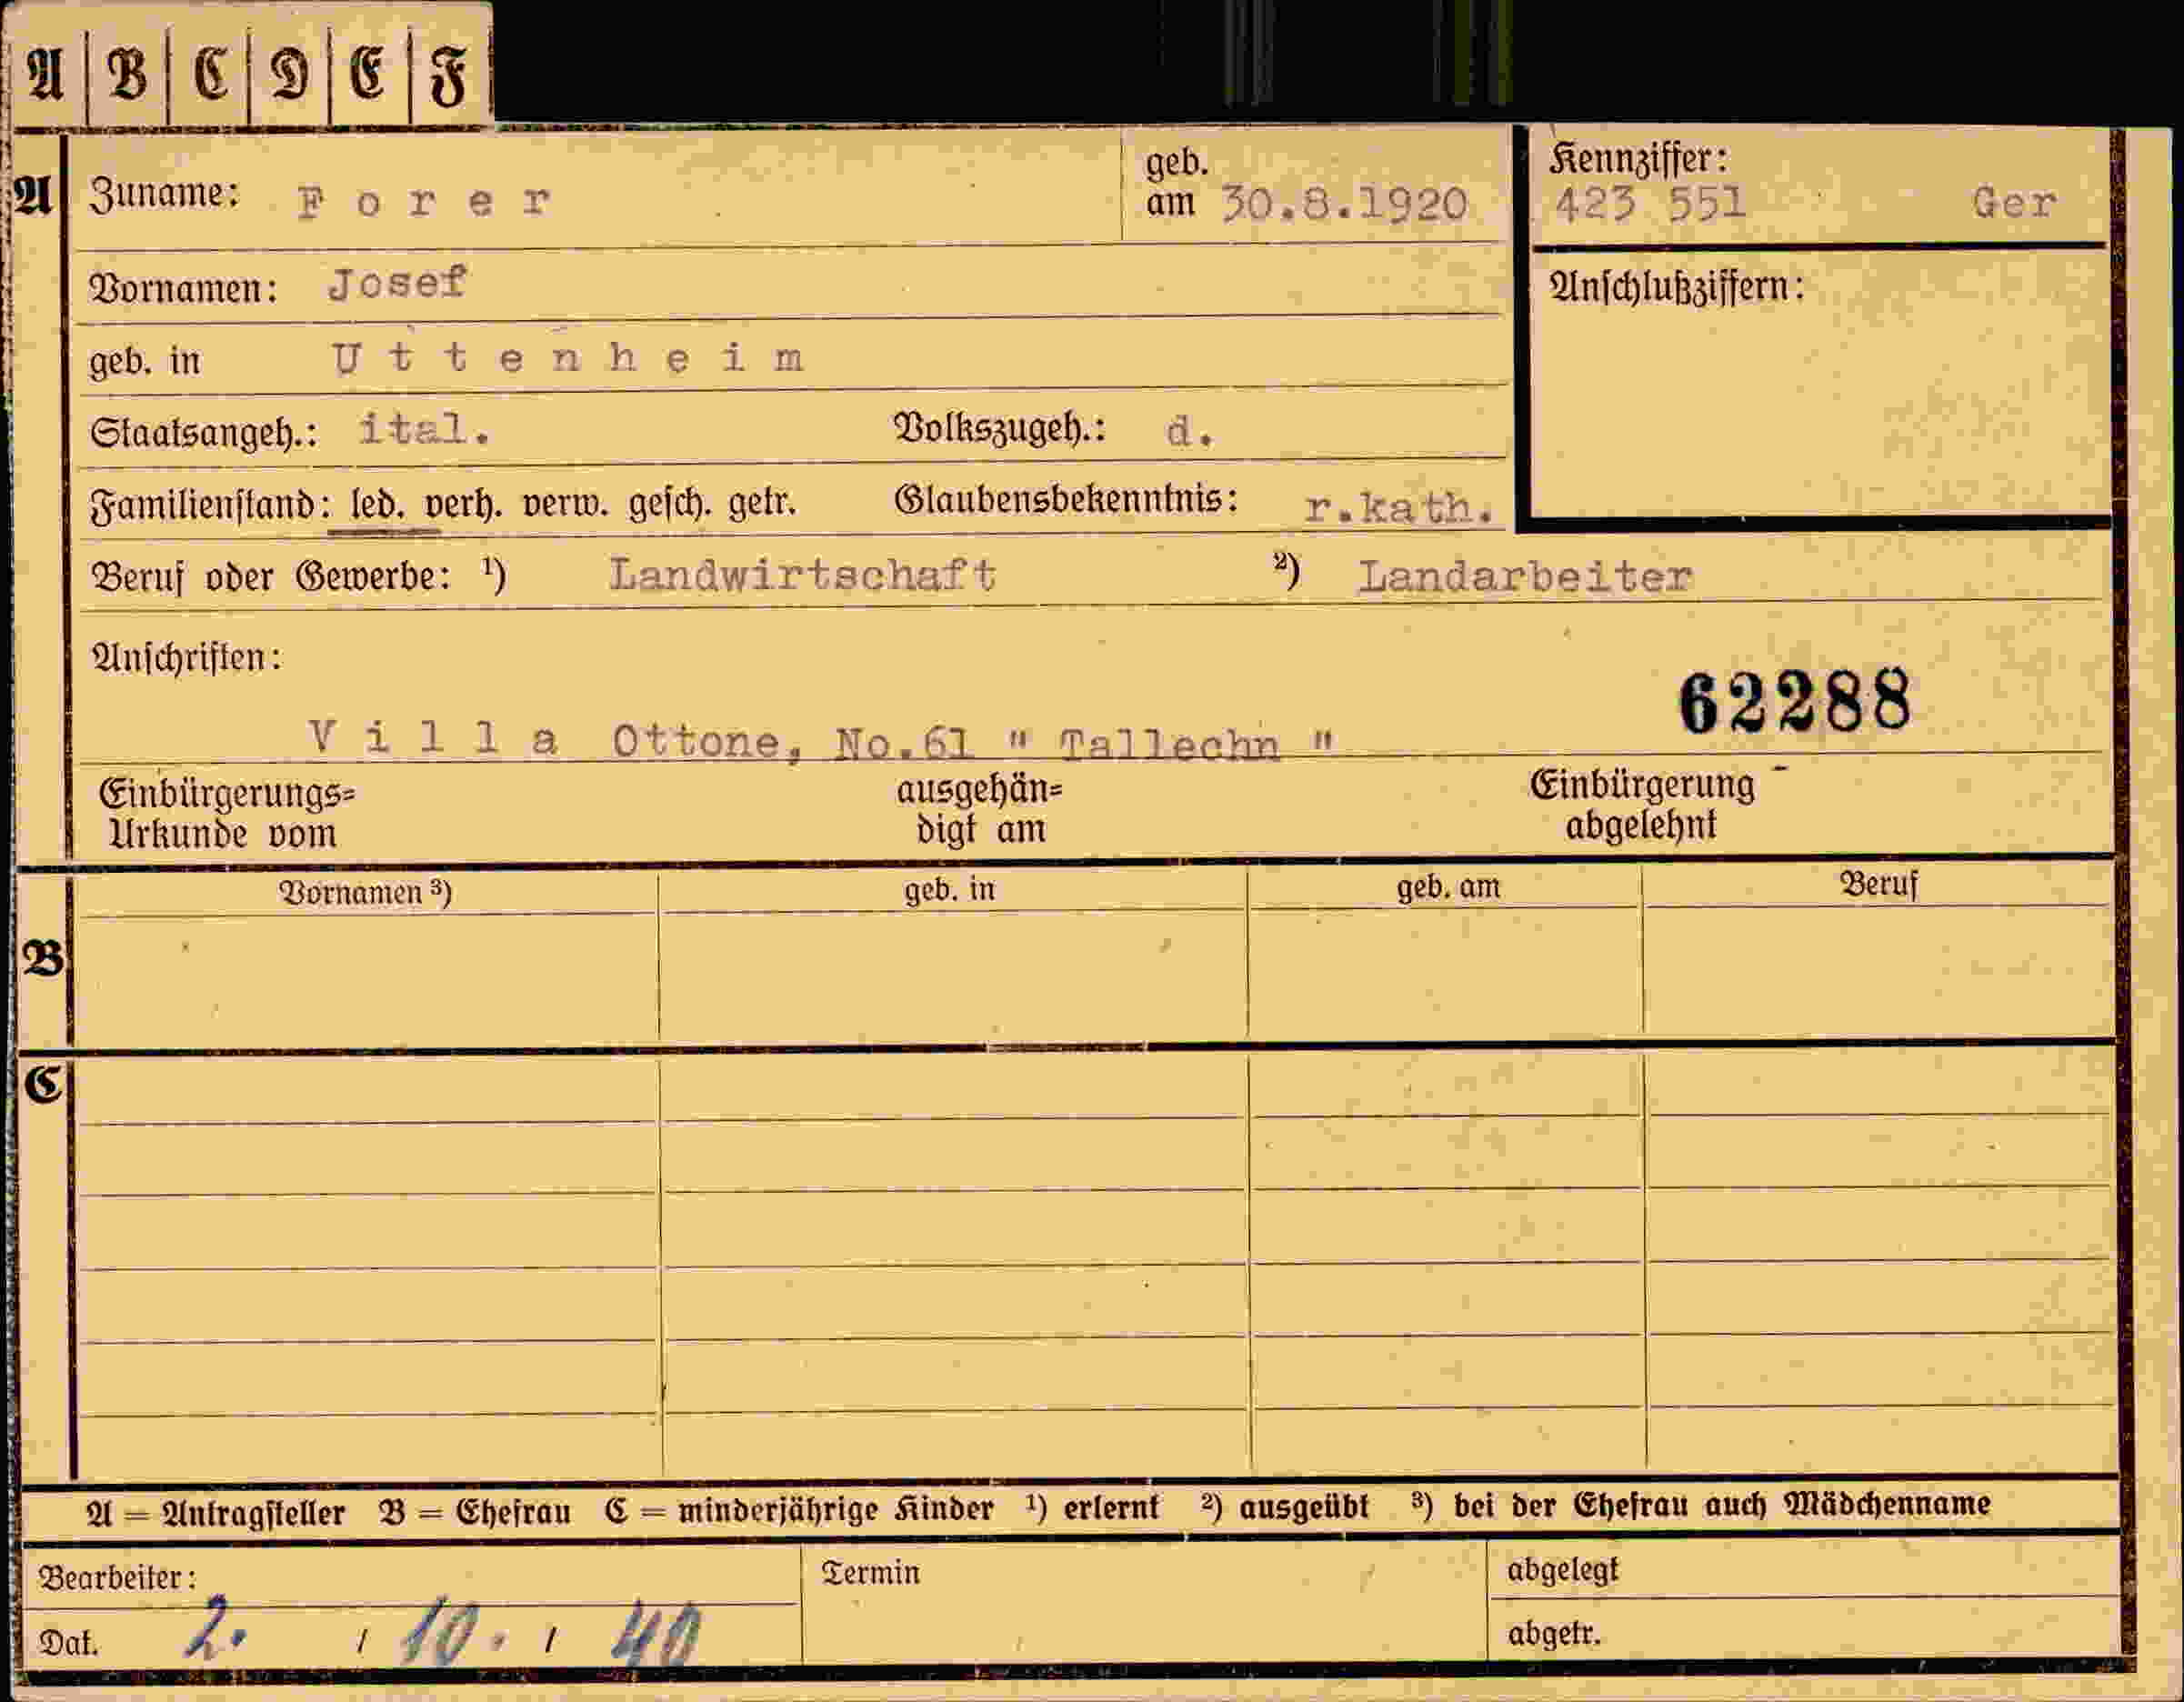 A B C D E F
A
Zuname: Forer
geb. am 30.8.1920
Kennziffer:
423 551 Ger
Vornamen: Josef
Anschlußziffern:
geb. in Uttenheim
Staatsangeh.: ital. Volkszugeh.: d.
Familienstand: led. verh. verw. gesch. getr. Glaubensbekenntnis: r.kath.
Beruf oder Gewerbe: ¹) Landwirtschaft ²) Landarbeiter
Anschriften:
62288
Villa Ottone, No.61 " Tallechn "
Einbürgerungs=
Urkunde vom
ausgehän=
digt am
Einbürgerung
abgelehnt
Vornamen ³) geb. in geb. am Beruf
B
C
A = Antragsteller B = Ehefrau C = minderjährige Kinder ¹) erlernt ²) ausgeübt ³) bei der Ehefrau auch Mädchenname
Bearbeiter:
Dat. 2. / 10. / 40
Termin
abgelegt
abgetr.